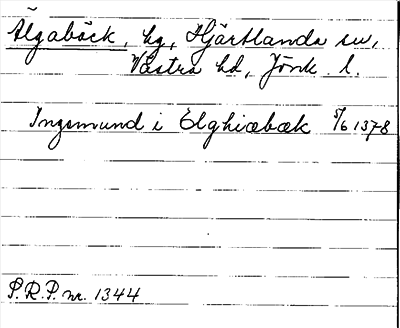 Älgabäck, hg, Hjärtlanda sn,
Västra hd, Jönk. l.
Ingemund i Elghiæbæk 5/6 1378
S.R.P. nr. 1344